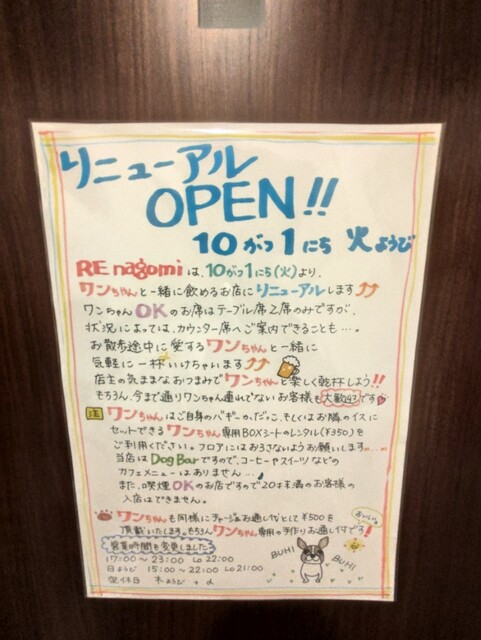 リニューアル
OPEN!!
10がつ1にち 火ようび
RE nagomiは、10がつ1にち(火)より、
ワンちゃんと一緒に飲めるお店にリニューアルします⤴⤴
ワンちゃんOKのお席はテーブル席2席のみですが、
状況によっては、カウンター席へご案内できることも…。
お散歩途中に愛するワンちゃんと一緒に
気軽に一杯いけちゃいます⤴⤴
店主の気ままなおつまみでワンちゃんと楽しく乾杯しよう!!
もちろん、今まで通りワンちゃん連れでないお客様も大歓迎です
注 ワンちゃんはご自身のバギーか、だっこ、もしくはお隣のイスに
セットできるワンちゃん専用BOXシートのレンタル(¥350)を
ご利用ください。フロアにはおろさないようお願いします……
当店はDog Barですので、コーヒーやスイーツなどの
カフェメニューはありません…。
また、喫煙OKのお店ですので20才未満のお客様の
入店はできません。
ワンちゃんも同様にチャージ&お通し代として¥500を
頂戴いたします。もちろんワンちゃん専用の手作りお通し付です!
おいしい
営業時間も変更しました
17:00〜23:00 Lo 22:00
日ようび 15:00〜22:00 Lo 21:00
定休日 木ようび +α
BUHI
BUHI